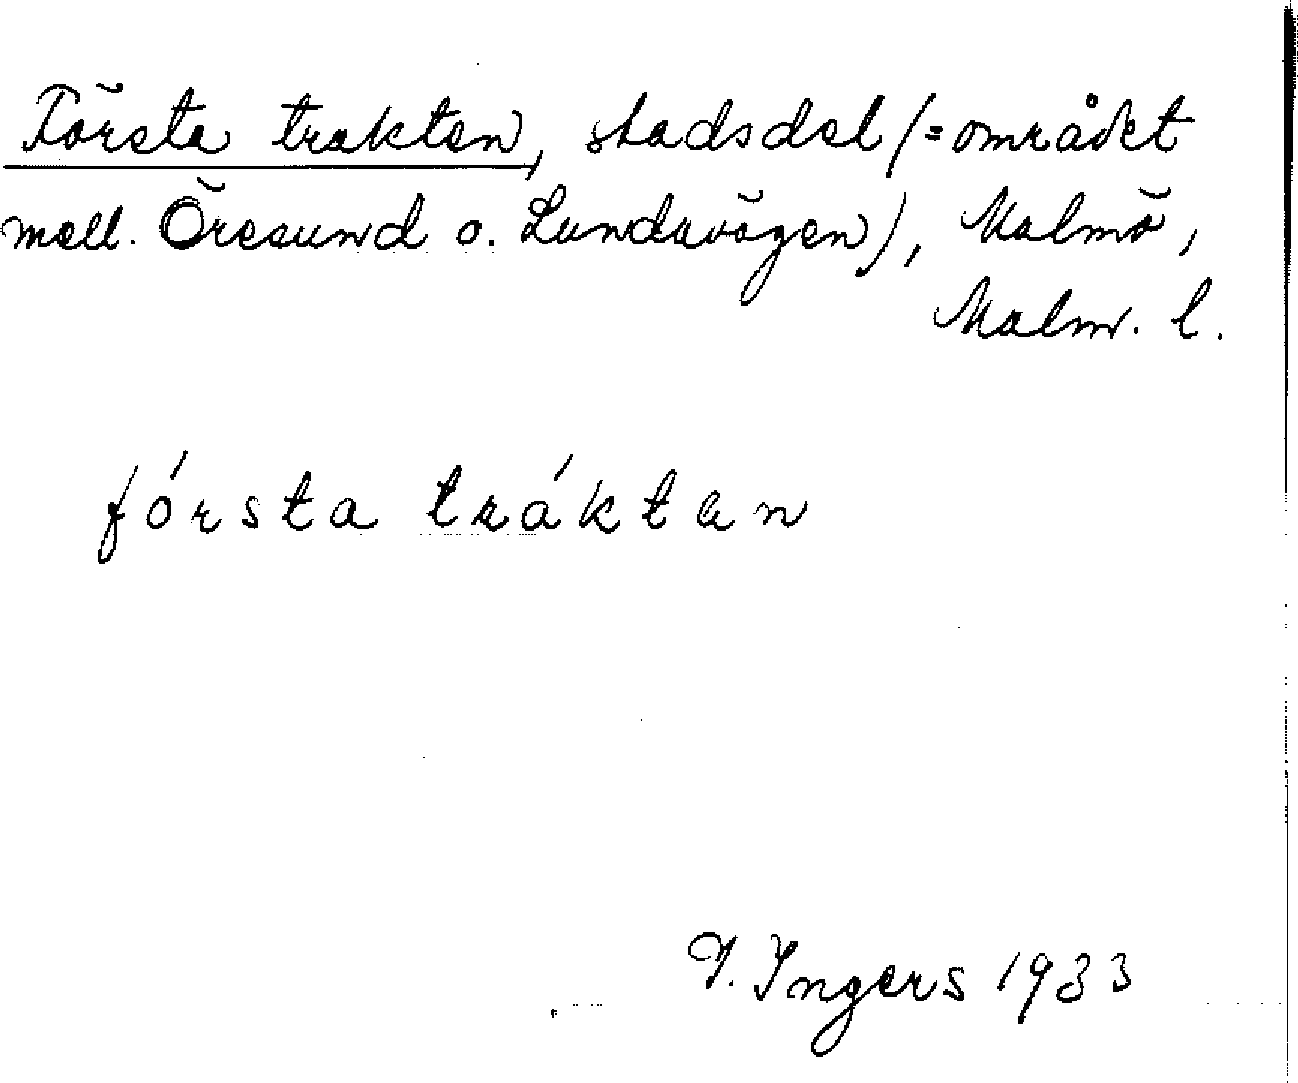 Första trakten, stadsdel (= området
mell. Öresund o. Lundavägen), Malmö,
Malm. l.
fórsta tráktan
I. Ingers 1933